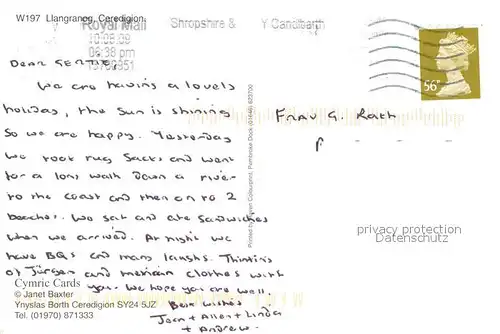 W197 Llangranog, Ceredigion
Royal Mail
Shropshire &
10.08.09
06:38 pm
19780351
56P
DEAR GERTIE,
We are having a lovely
holiday, the sun is shining
So we are happy. Yesterday
we took rug sacks and went
for a long walk down a river
to the coast and then on to 2
beaches. We sat and ate sandwiches
when we arrived. At night we
have BQs and many laughs. Thinking
of Jürgen and mexican clothes with
you. We hope you are well.
Best wishes
Jean + Allen + Linda
+ Andrew.
Frau G. Rath
privacy protection
Datenschutz
Cymric Cards
© Janet Baxter
Ynyslas Borth Ceredigion SY24 5JZ
Tel. (01970) 871333
Colourprint, Pembroke Dock (01646) 623700